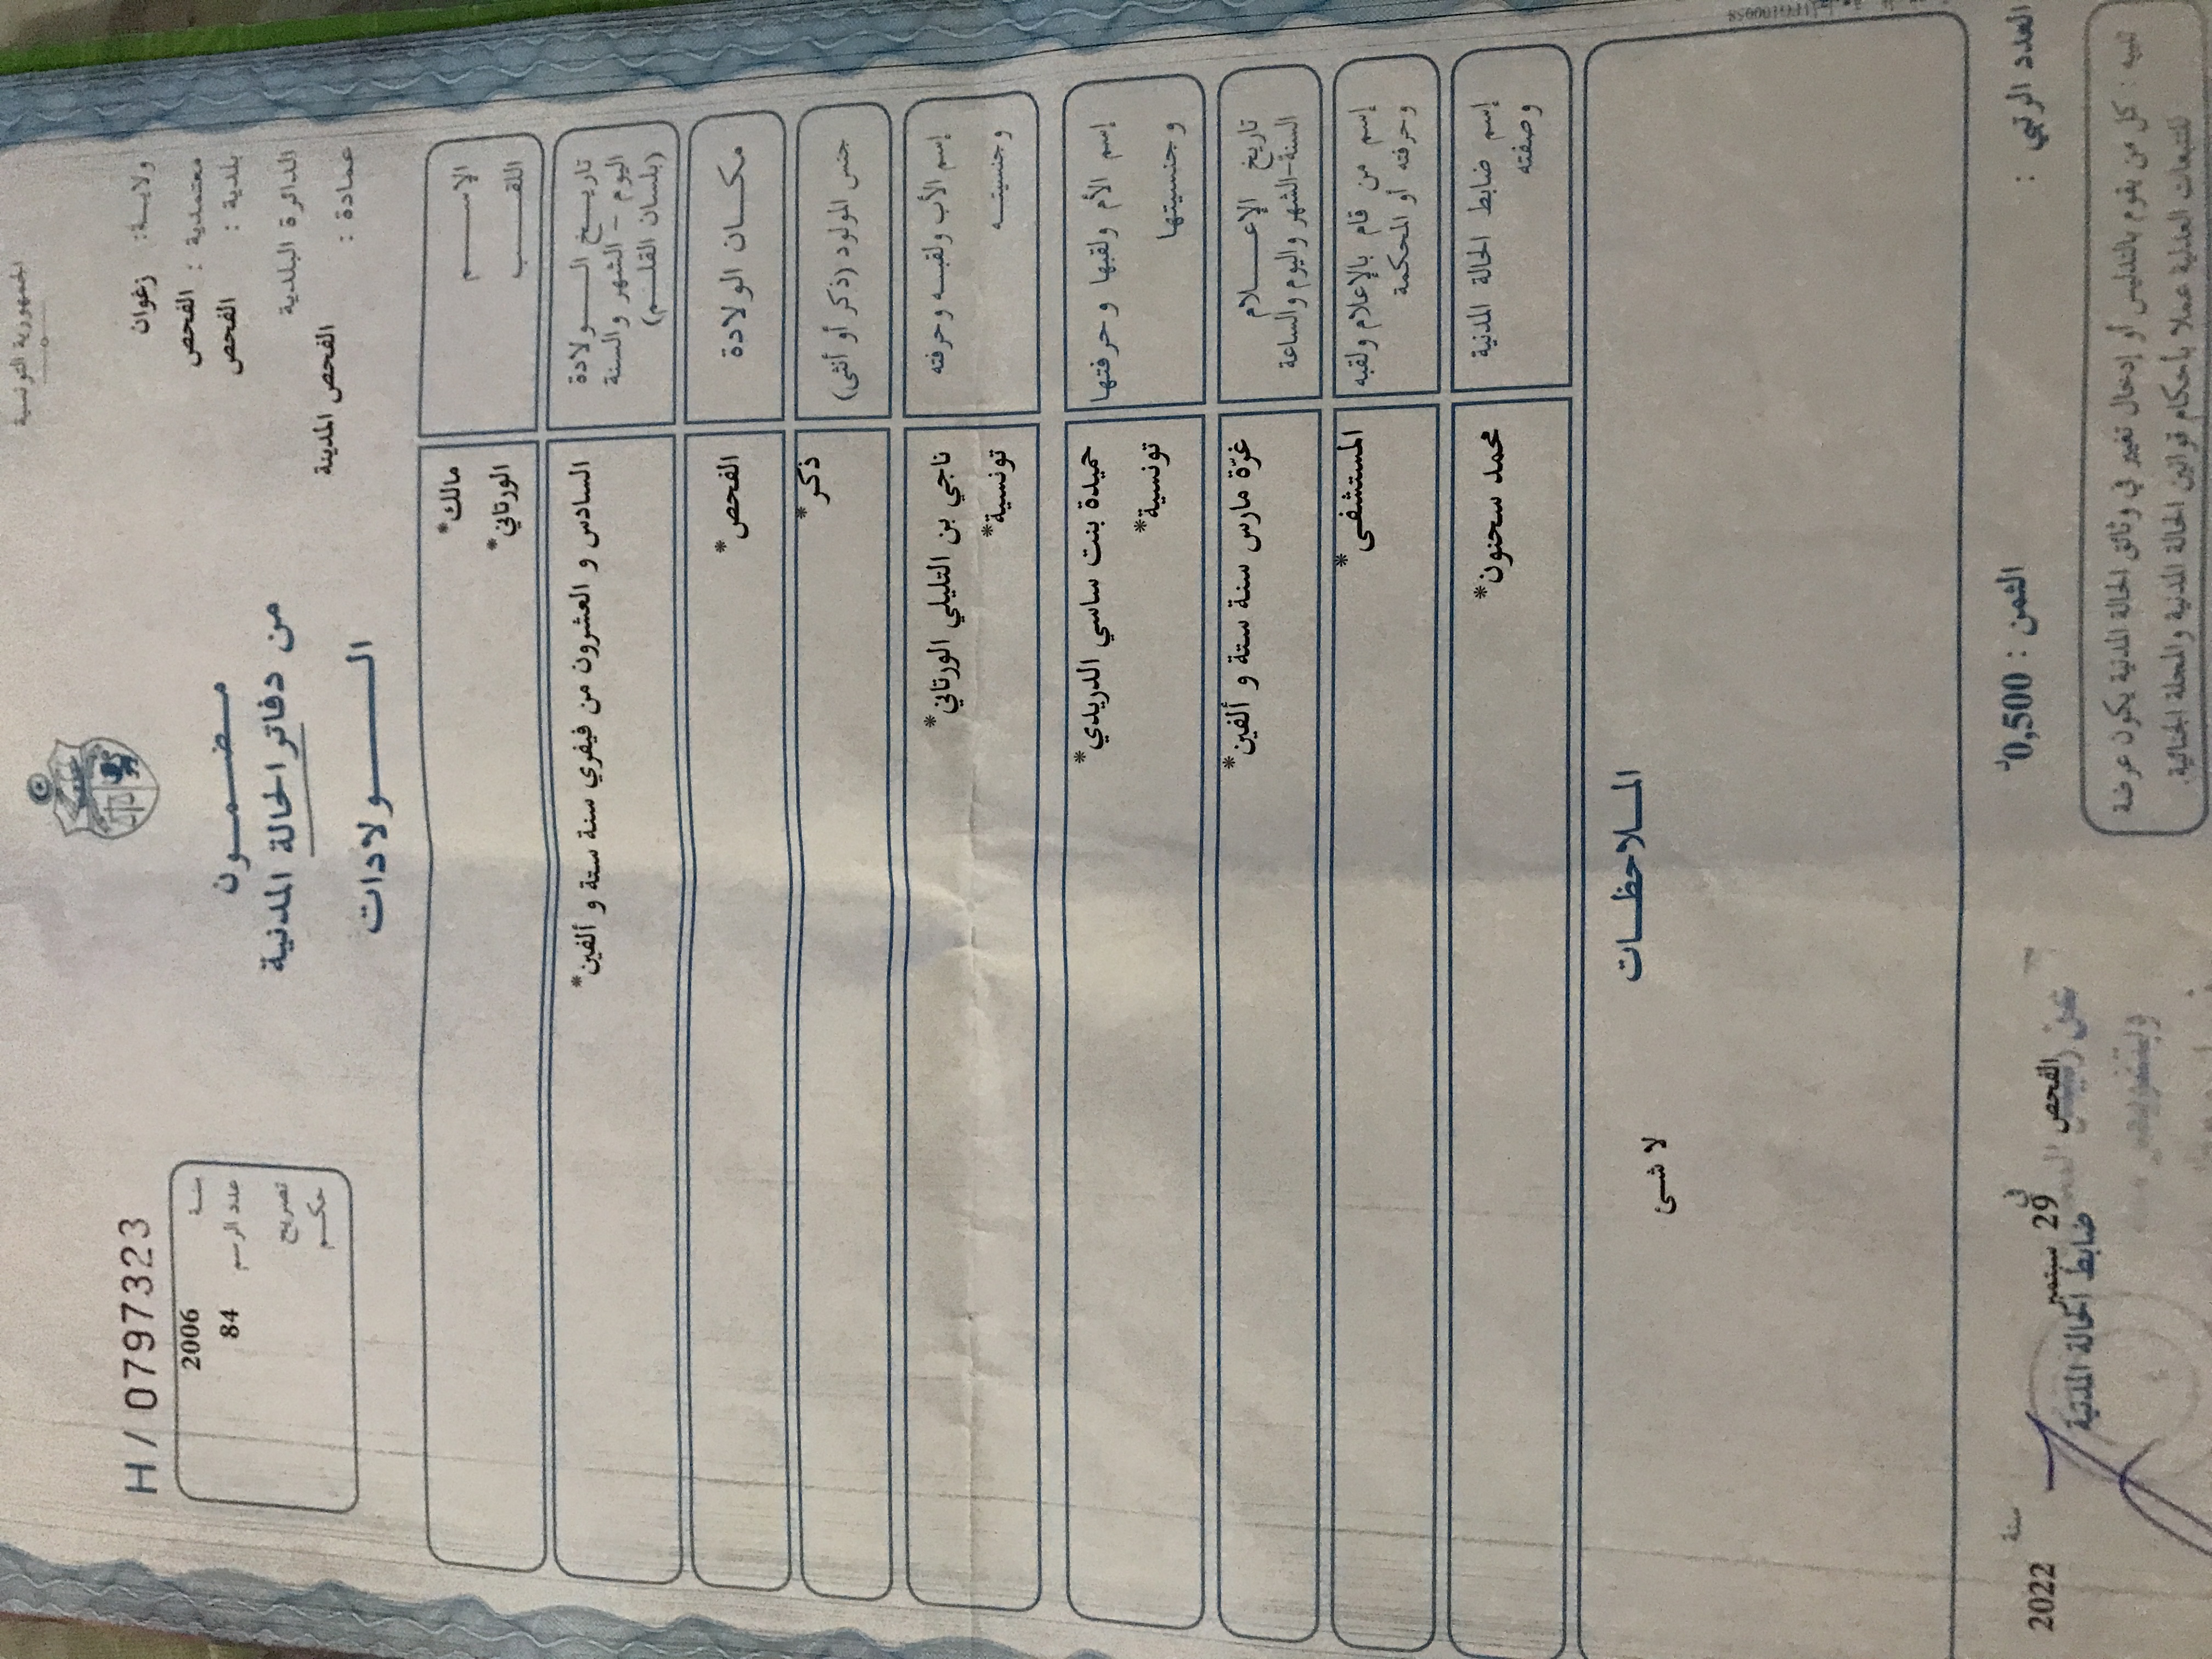 الجمهورية التونسية
ولاية: زغوان
معتمدية : الفحص
بلدية : الفحص
الدائرة البلدية
عمادة : الفحص المدينة
مضمون
من دفاتر الحالة المدنية
الولادات
H / 0797323
سنة 2006
عدد الرسم 84
تصريح
حكم
الإسم *مالك
اللقب *الورتاني
تاريخ الولادة
اليوم - الشهر والسنة
(بلسان القلم)
السادس و العشرون من فيفري سنة ستة و ألفين*
مكان الولادة
الفحص*
جنس المولود (ذكر أو أنثى)
ذكر*
إسم الأب ولقبه وحرفته
ناجي بن التليلي الورتاني*
وجنسيته
تونسية*
إسم الأم ولقبها وحرفتها
حميدة بنت ساسي الدريدي*
وجنسيتها
تونسية*
تاريخ الإعلام
السنة-الشهر واليوم والساعة
غرّة مارس سنة ستة و ألفين*
إسم من قام بالإعلام ولقبه
وحرفته أو المحكمة
المستشفى*
إسم ضابط الحالة المدنية
وصفته
محمد سحنون*
الملاحظات
لا شئ
العدد الرتبي :
الثمن : 0,500د
الفحص في 29 سبتمبر سنة 2022
ضابط الحالة المدنية
تنبيه : كل من يقوم بالتدليس أو إدخال تغيير في وثائق الحالة المدنية يكون عرضة
للتتبعات العدلية عملا بأحكام قوانين الحالة المدنية والمجلة الجنائية.